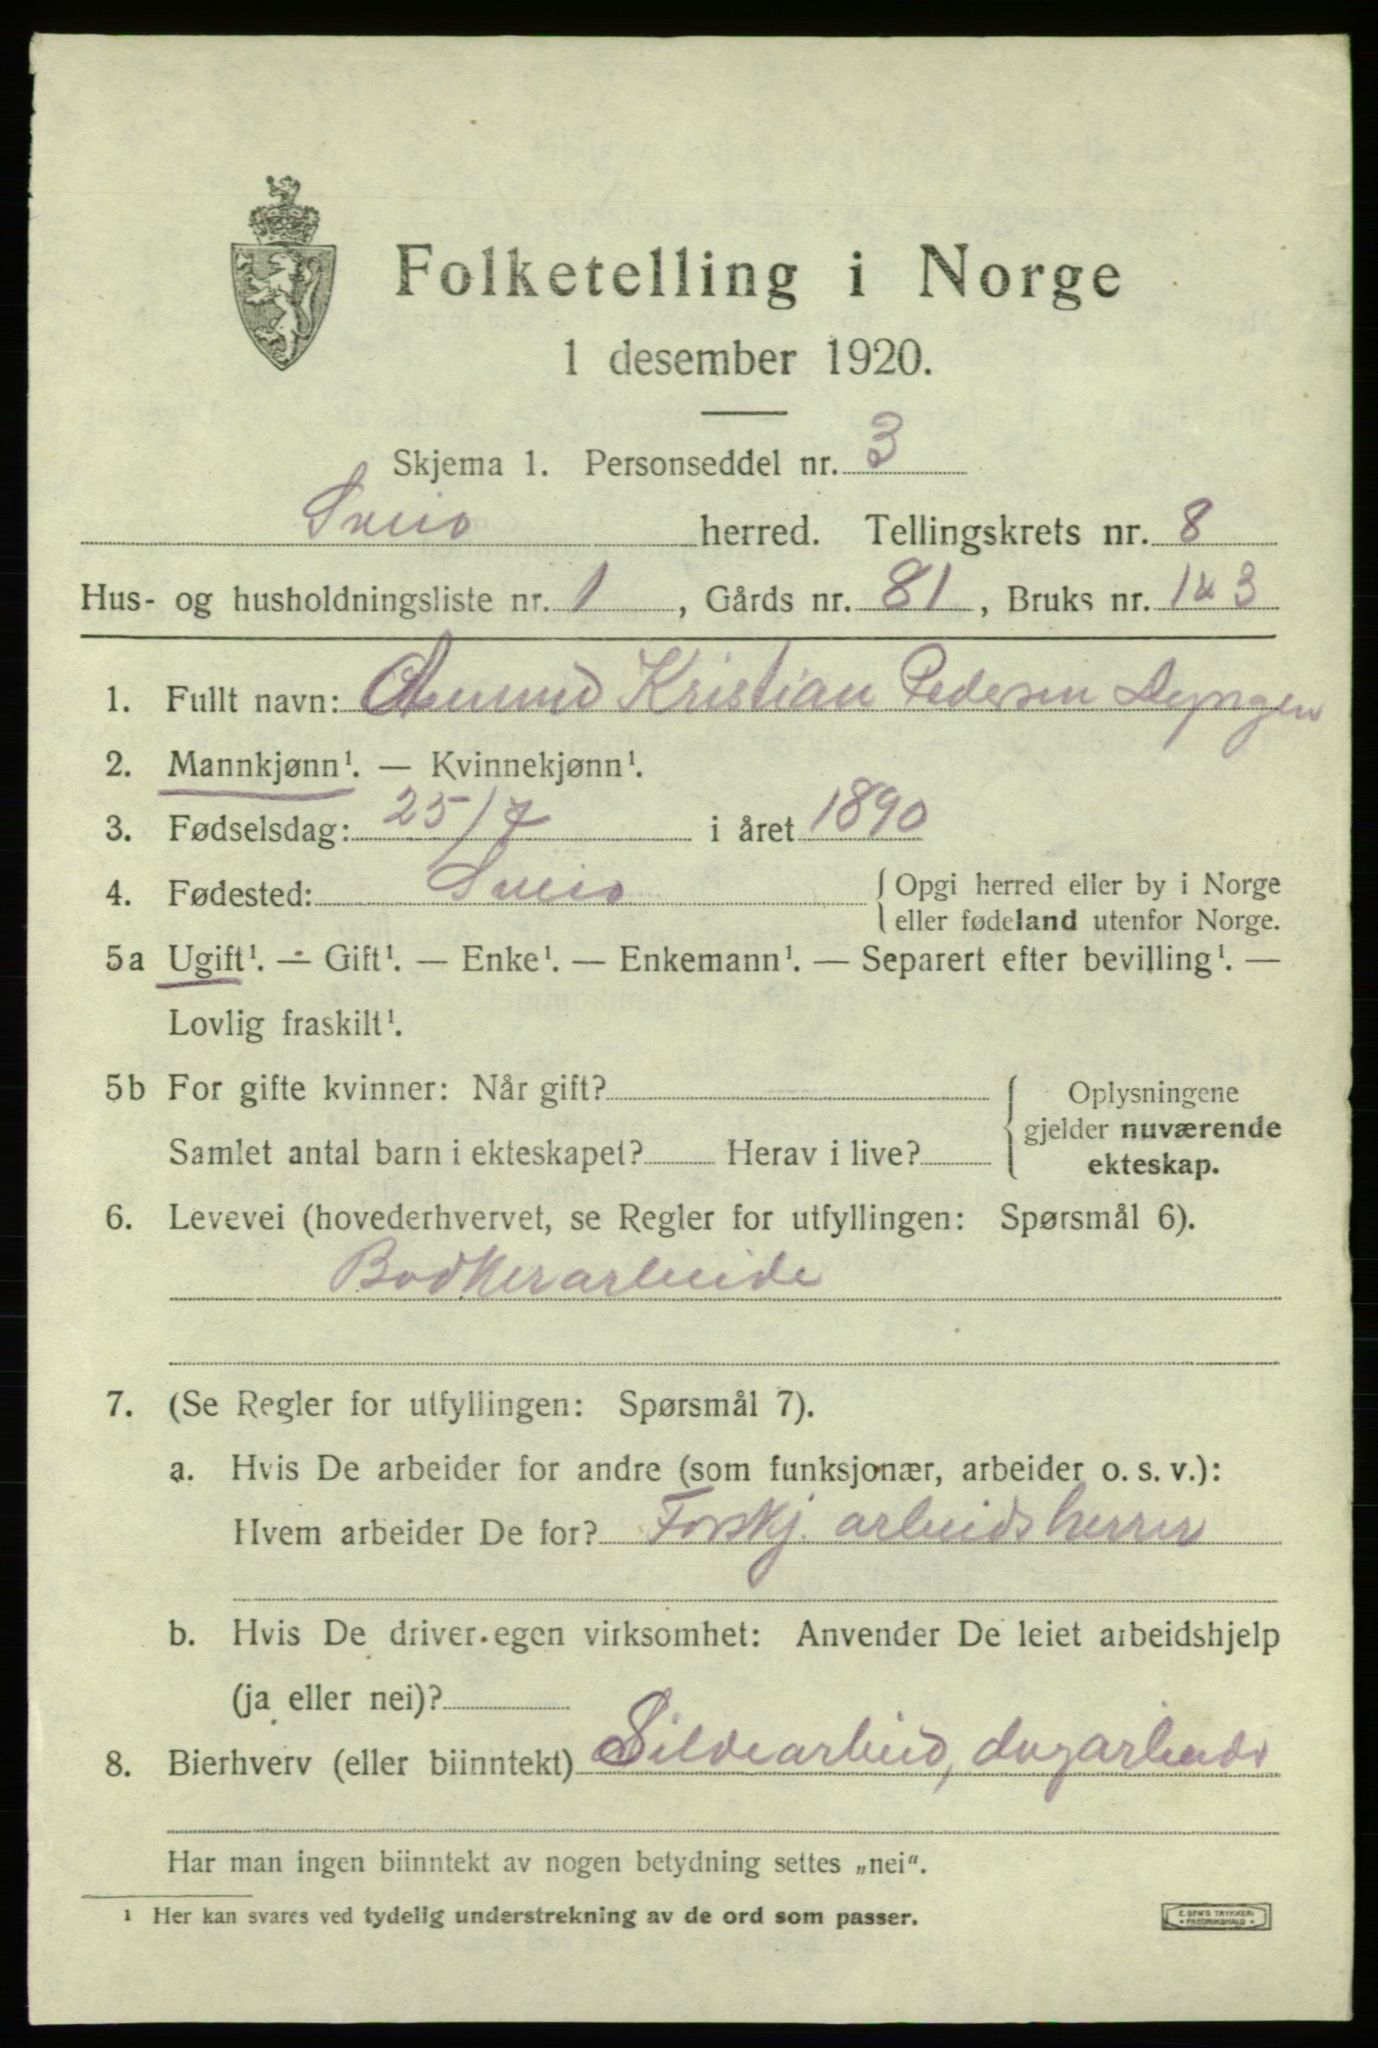 Folketelling i Norge
1 desember 1920.
Skjema 1. Personseddel nr. 3
Sveio herred. Tellingskrets nr. 8
Hus- og husholdningsliste nr. 1, Gårds nr. 81, Bruks nr. 1 & 3
1. Fullt navn: Amund Kristian Pedersen Dyngen
2. Mannkjønn¹. — Kvinnekjønn¹.
3. Fødselsdag: 25/7 i året 1890
4. Fødested: Sveio { Opgi herred eller by i Norge
eller fødeland utenfor Norge.
5a Ugift¹. — Gift¹. — Enke¹. — Enkemann¹. — Separert efter bevilling¹. —
Lovlig fraskilt¹.
5b For gifte kvinner: Når gift? { Oplysningene
gjelder nuværende
Samlet antal barn i ekteskapet? Herav i live? ekteskap.
6. Levevei (hovederhvervet, se Regler for utfyllingen: Spørsmål 6).
Bødkerarbeide
7. (Se Regler for utfyllingen: Spørsmål 7).
a. Hvis De arbeider for andre (som funksjonær, arbeider o. s. v.):
Hvem arbeider De for? Forskj. arbeidsherrer
b. Hvis De driver egen virksomhet: Anvender De leiet arbeidshjelp
(ja eller nei)?
8. Bierhverv (eller biinntekt) Sildearbeid, dagarbeide
Har man ingen biinntekt av nogen betydning settes „nei“.
¹ Her kan svares ved tydelig understrekning av de ord som passer.
E. SEM'S TRYKKERI
FREDRIKSHALD